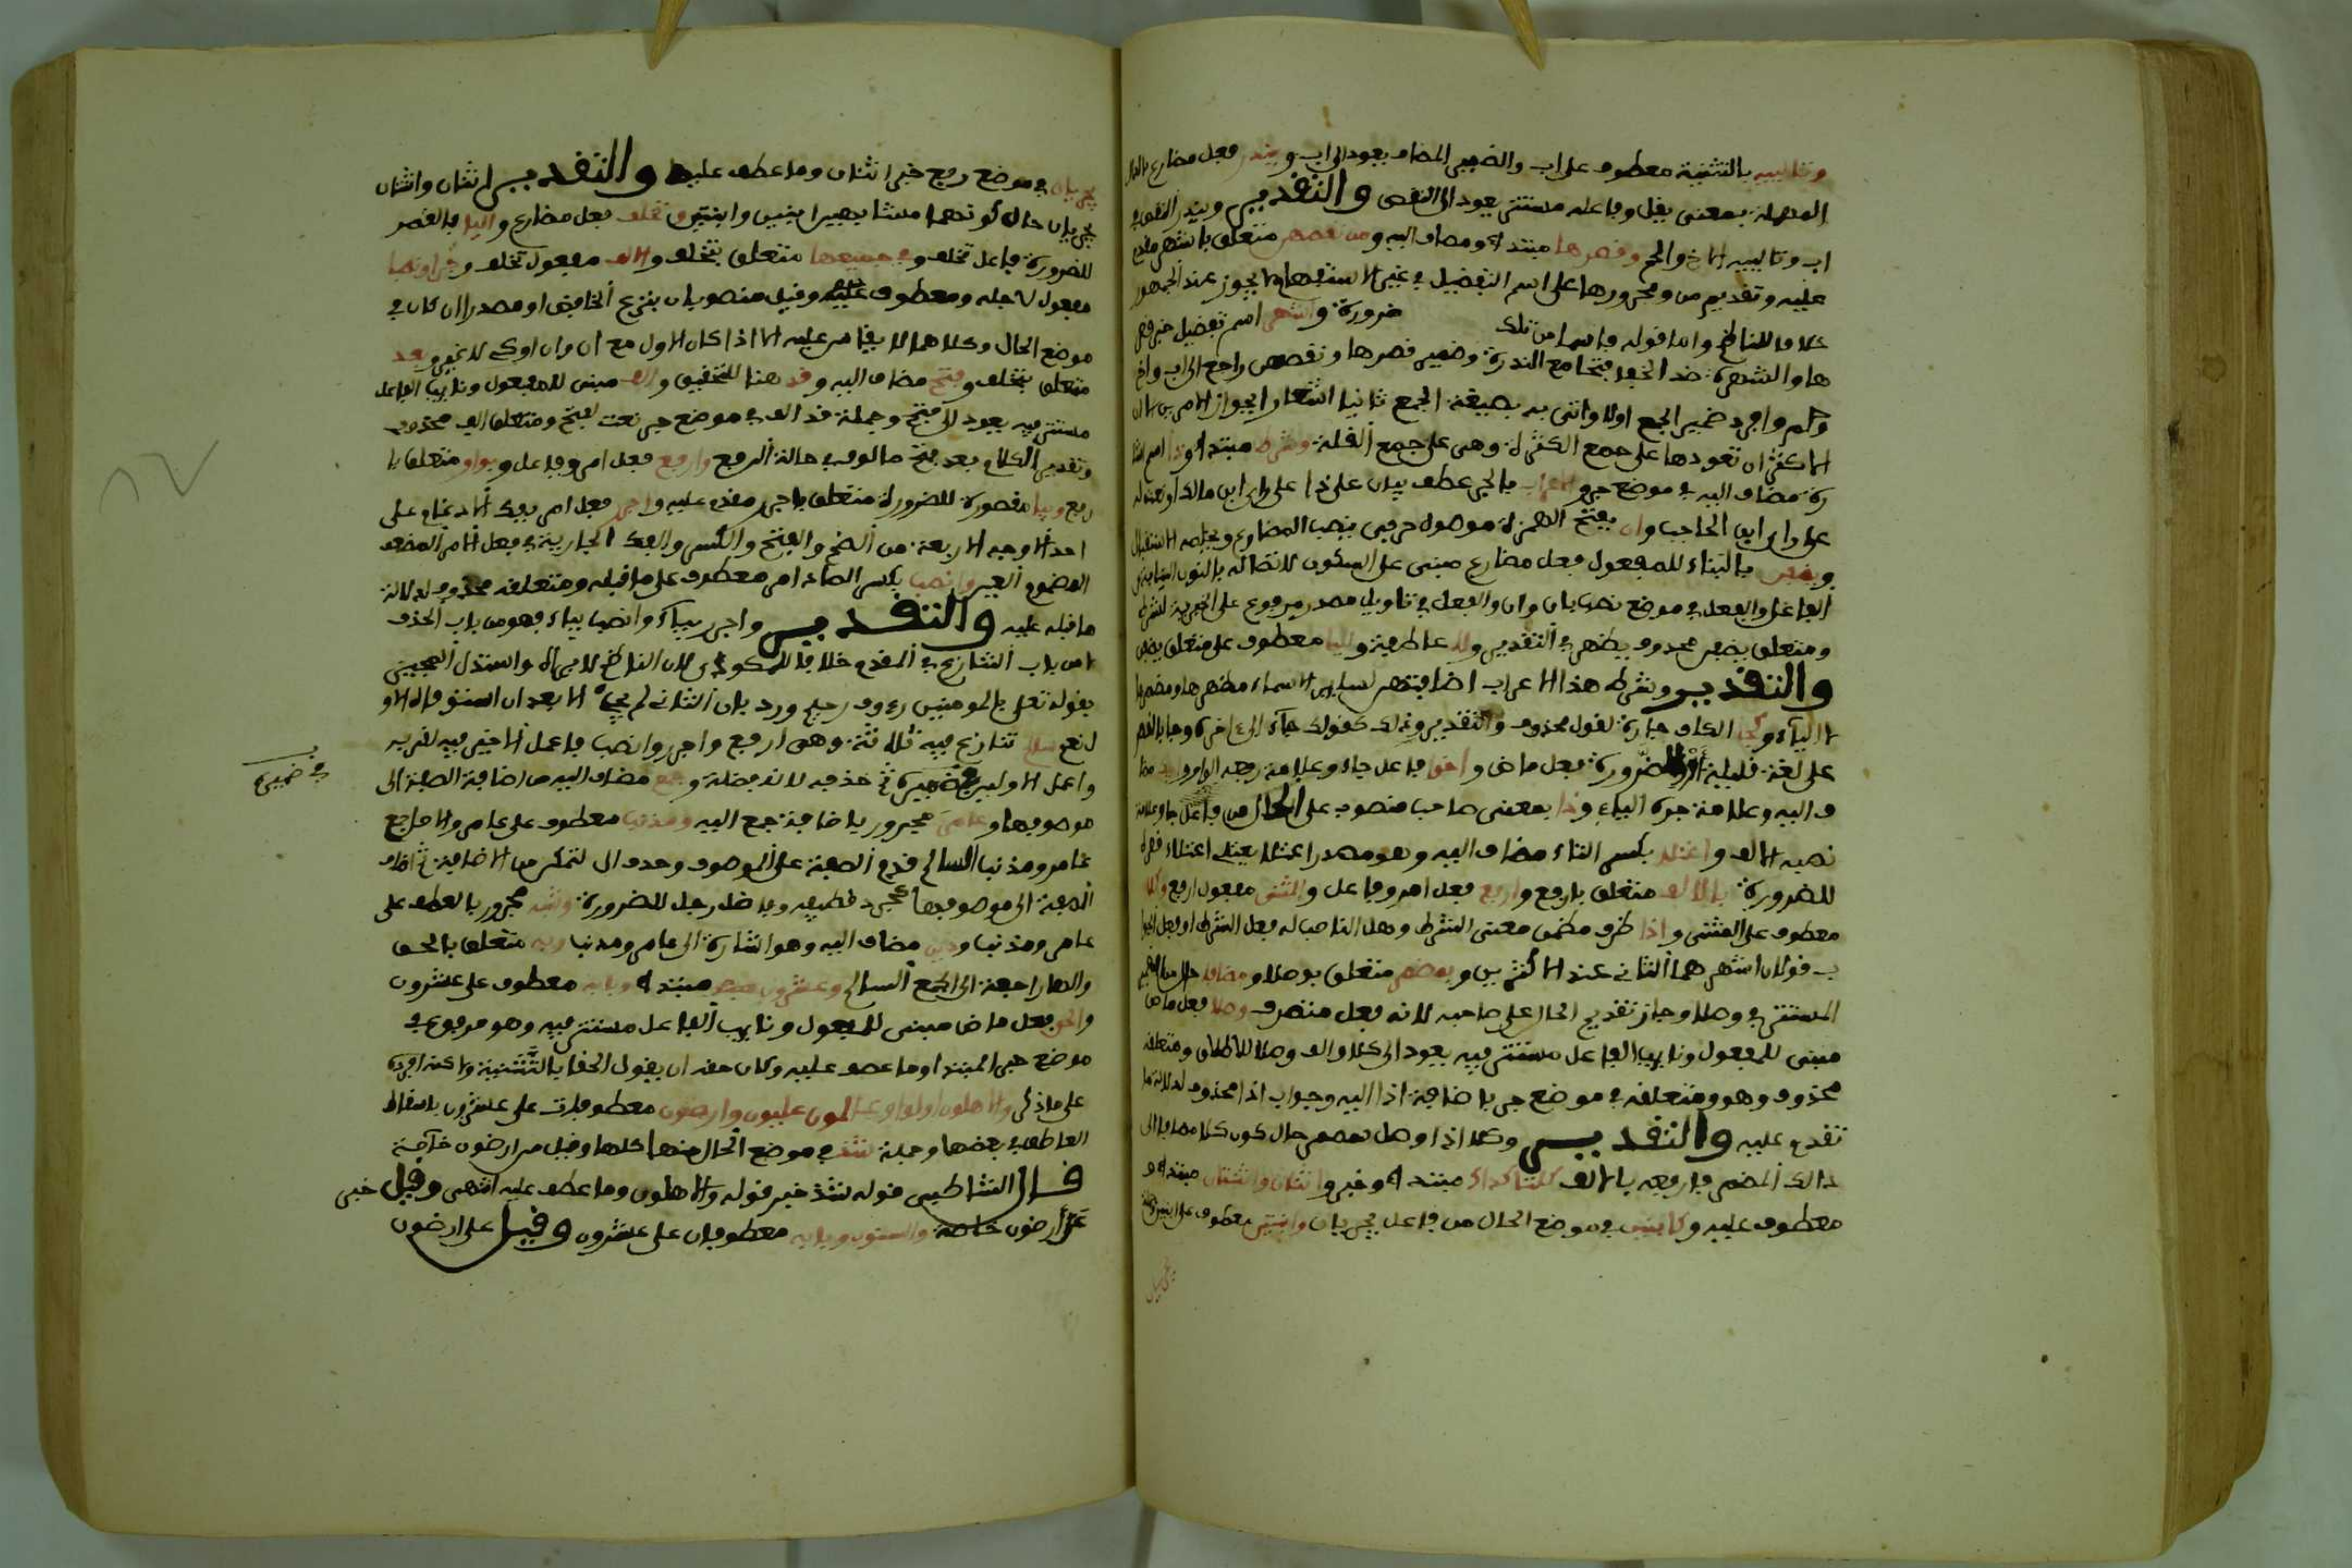 وتالييه بالتثنية معطوف على اب والضمير المضاف يعود الى اب ويندر فعل مضارع بالدال
المهملة بمعنى يقل وفاعله مستتر يعود الى النقص والتقدير ويندر النقص في
اب وتالييه الاخ والحم وقصرها مبتدا ومضاف اليه ومن نقصهن متعلق باشهر مقدم
عليه وتقديم من ومجرورها على اسم التفضيل في غير الاستفهام لا يجوز عند الجمهور
خلافا للناظم واما قوله فاسما من تلك ضرورة واشهر اسم تفضيل خبر قصر
ها والشهرة ضد الخفا فتجامع الندرة وضمير قصرها ونقصهن راجع الى اب واخ
وحم وافرد ضمير الجمع اولا واتى به بصيغة الجمع ثانيا اشعارا بجواز الامرين الا ان
الاكثر ان تعودها على جمع الكثرة وهن على جمع القلة وشرط مبتدا وذا اسم اشا
رة مضاف اليه في موضع جر والاعراب بالجر عطف بيان على ذا على راى ابن مالك او نعت له
على راى ابن الحاجب وان بفتح الهمزة موصول حرفي ينصب المضارع ويخلصه للاستقبال
ويضفن بالبناء للمفعول فعل مضارع مبنى على السكون لاتصاله بالنون النايبة عن
الفاعل والفعل في موضع نصب بان وان والفعل في تاويل مصدر مرفوع على الخبرية لشرط
ومتعلق يضفن محذوف يظهر في التقدير ولا عاطفة ولليا معطوف على متعلق يضفن
والتقدير وشرط هذا الاعراب اضافتهن لساير الاسماء مظهرها ومضمرها
لا الياء وكجا الكاف جارة لقول محذوف والتقدير وذلك كقولك جاء الى اخره وجا بالقصر
على لغة قليلة او للضرورة فعل ماض واخو فاعل جاء وعلامة رفعه الواو وابيك مضا
ف اليه وعلامة جره الياء وذا بمعنى صاحب منصوب على الحال من فاعل جا وعلامة
نصبه الالف واعتلا بكسر التاء مضاف اليه وهو مصدر اعتلا يعتلى اعتلاء قصره
للضرورة بالالف متعلق بارفع وارفع فعل امر وفاعل والمثنى مفعول ارفع وكلا
معطوف على المثنى واذا ظرف مضمن معنى الشرط وهل الناصب له فعل الشرط او فعل الجوا
ب قولان اشهرهما الثاني عند الاكثرين وبمضمر متعلق بوصلا ومضافا حال من الضمير
المستتر في وصلا وجاز تقديم الحال على صاحبه لانه فعل متصرف وصلا فعل ماض
مبنى للمفعول ونايب الفاعل مستتر فيه يعود الى كلا والف وصلا للاطلاق ومتعلقه
محذوف وهو ومتعلقه في موضع جر باضافة اذا اليه وجواب اذا محذوف لدلالة ما
تقدم عليه والتقدير وكلا اذا وصل بمضمر حال كون كلا مضافا الى
ذالك المضمر فارفعه بالالف كلتا كذاك مبتدا وخبر واثنان واثنتان مبتدا و
معطوف عليه وكابنين في موضع الحال من فاعل يجريان وابنتين معطوف على ابنين وجملة
يجريان في موضع رفع خبر اثنان وما عطف عليه والتقدير اثنان واثنتان
يجريان حال كونهما مشابهين ابنين وابنتين وتخلف فعل مضارع واليا بالقصر
للضرورة فاعل تخلف وفي جميعها متعلق بتخلف والالف مفعول تخلف وجرا ونصبا
مفعول لاجله ومعطوف عليه وقيل منصوبان بنزع الخافض او مصدران كان في
موضع الحال وكلاهما لا يقاس عليه الا اذا كان الاول مع ان وان او كي لا غير وبعد
متعلق بتخلف وفتح مضاف اليه وقد هنا للتحقيق والف مبنى للمفعول ونايب الفاعل
مستتر فيه يعود الى فتح وجملة قد الف في موضع جر نعت لفتح ومتعلق الف محذوف
وتقدير الكلام بعد فتح مالوف في حالة الرفع وارفع فعل امر وفاعل وبواو متعلق با
رفع وبيا مقصورة للضرورة متعلق باجرر مقدم عليه واجرر فعل امر بفك الادغام على
احد الاوجه الاربعة من الضم والفتح والكسر والفك الجارية في فعل الامر المضعف
المضموم العين وانصب بكسر الصاد امر معطوف على ما قبله ومتعلقه محذوف لدلالة
ما قبله عليه والتقدير واجرر بياء وانصب بياء فهو من باب الحذف
لا من باب التنازع في المقدم خلافا للمكودى لان الناظم لا يراه واستدل المجيز
بقوله تعلى بالمومنين رءوف رحيم ورد بان الثاني لم يجئ الا بعد ان استوفاه الاو
ل نعم سالم تنازع فيه ثلاثة وهى ارفع واجرر وانصب فاعمل الاخير فيه لقربه
واعمل الاولين في ضميره ثم حذفه لانه فضلة وجمع مضاف اليه من اضافة الصفة الى
في ضميره
موصوفها وعامر مجرور باضافة جمع اليه ومذنب معطوف على عامر والاصل جمع
عامر ومذنب السالم قدم الصفة على الموصوف وحذف ال لتمكن من الاضافة ثم اضاف
الصفة الى موصوفها كجرد قطيفة وفاضل رجل للضرورة وشبه مجرور بالعطف على
عامر ومذنب وذين مضاف اليه وهو اشارة الى عامر ومذنب وبه متعلق بالحق
والها راجعة الى الجمع السالم وعشرون مبتدا وبابه معطوف على عشرون
والحق فعل ماض مبنى للمفعول ونايب الفاعل مستتر فيه وهو مرفوع في
موضع خبر المبتدا وما عطف عليه وكان حقه ان يقول الحقا بالتثنية ولكنه افرده
على ما ذكر والاهلون اولوا وعالمون عليون وارضون معطوفات على عشرون باسقاط
العاطف في بعضها وجملة شذ في موضع الحال منها كلها وقيل من ارضون خاصة
قال الشاطبي قوله شذ خبر قوله والاهلون وما عطف عليه انتهى وقيل خبر
عن ارضون خاصة والسنون وبابه معطوفان على عشرون وقيل على ارضون